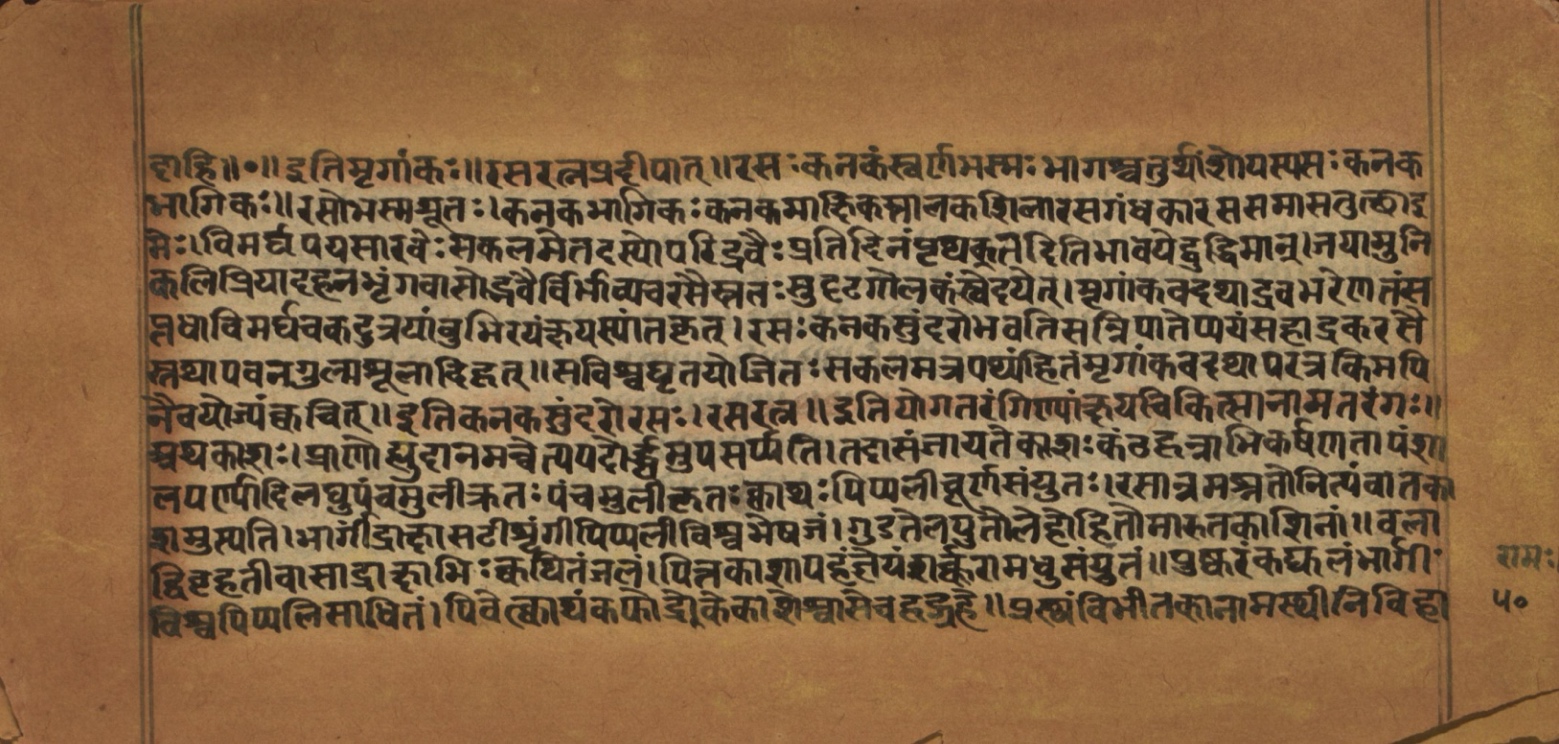 दाहि॥०॥इतिमृगांकः॥रसरत्नप्रदीपात्॥रसःकनकंस्वर्णभस्मःभागश्चतुर्थांशोयस्यसःकनक
भागिकः॥रसोभस्मसूतः।कनकभागिकःकनकमाक्षिकमालकशिलारसगंधकारससमासतुत्छाइ
मेः।विमर्द्यपयसारवेःसकलमेतदस्योपरिद्रवैःप्रतिदिनंपृथक्कुनेदितिभावयेद्बुद्धिमान्।जयामुनि
कलिप्रियादहनभृंगवासोद्भवैर्विर्भाव्यचरसैस्ततःसुदृटगोलकंस्वेदयेत्।मृगांकवदथाद्रवभरेणतंस
प्तधाविमर्द्यचकटुत्रयांबुभिरयंक्षयस्यांतकृत्।रसःकनकसुंदरोभवतिसन्निपातेप्ययंसहाद्रकरसै
स्तथापवनगुल्मशूलादिहृत्॥सविश्वघृतयोजितःसकलमत्रपथ्यंहितंमृगांकवदथापरत्रकिमपि
नैवयोज्यंक्वचित्॥इतिकनकसुंदरोरसः।रसरत्न॥इतियोगतरंगिण्यांक्षयचिकित्सानामतरंगः॥
श्वथकाशः।प्राणोह्युदानमन्वेत्यपदोर्द्धमुपसर्प्पति।तदासंजायतेकाशःकंठहृन्नाभिकर्षणतापंशा
लपर्ण्यादिलघुपंचमुलीक्रतःपंचमुलीकृतःक्वाथःपिप्पलीचूर्णसंयुतः।रसान्नमश्नतोनित्यंवांतका
शमुस्यति।भार्गीद्राक्षासटीशृंगीपिप्पलीविश्वभेषजं।गुडतेलयुतोलेहोहितोमारुतकाशिनां॥बला
द्विबृहतीवासाद्राक्षाभिःक्वथितंजलं।पित्तकाशापहंज्ञेयंशर्क्करामधुसंयुतं॥पुष्करंकट्फलंभार्गी
विश्वपिप्पलिसाधितं।पिवेत्क्वाथंकफोद्रोकेकाशेश्वासेचहृद्ग्रहे॥प्रस्थंविभीतकानामस्थीनिविहा
रामः
५०